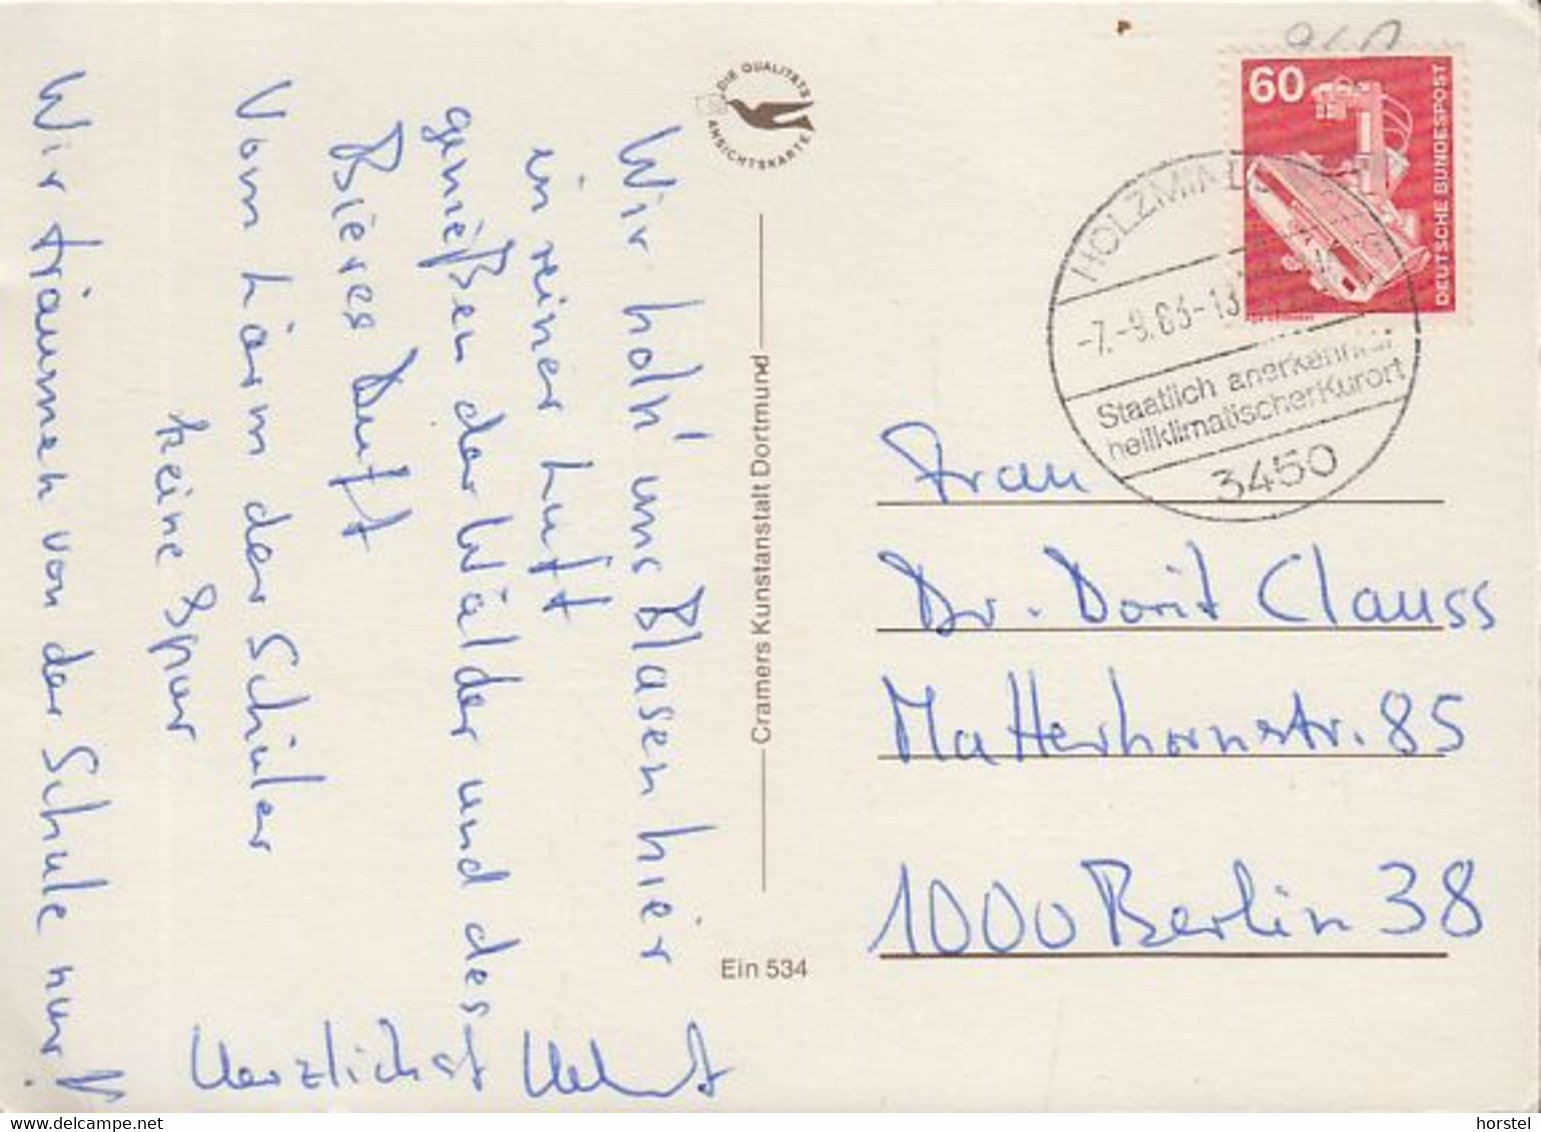 Wir hol'n uns Blasen hier
in reiner Luft
genießen der Wälder und des
Bieres Duft
Vom Lärm der Schüler
keine Spur
Wir träumen von der Schule nur!
Herzlichst
DIE QUALITÄTS
ANSICHTSKARTE
Cramers Kunstanstalt Dortmund
Ein 534
60
DEUTSCHE BUNDESPOST
HOLZMINDEN
-7.-9.83-13
Staatlich anerkannter
heilklimatischer Kurort
3450
Frau
Dr. Dorit Clauss
Matterhornstr. 85
1000 Berlin 38
www.delcampe.net
horstel